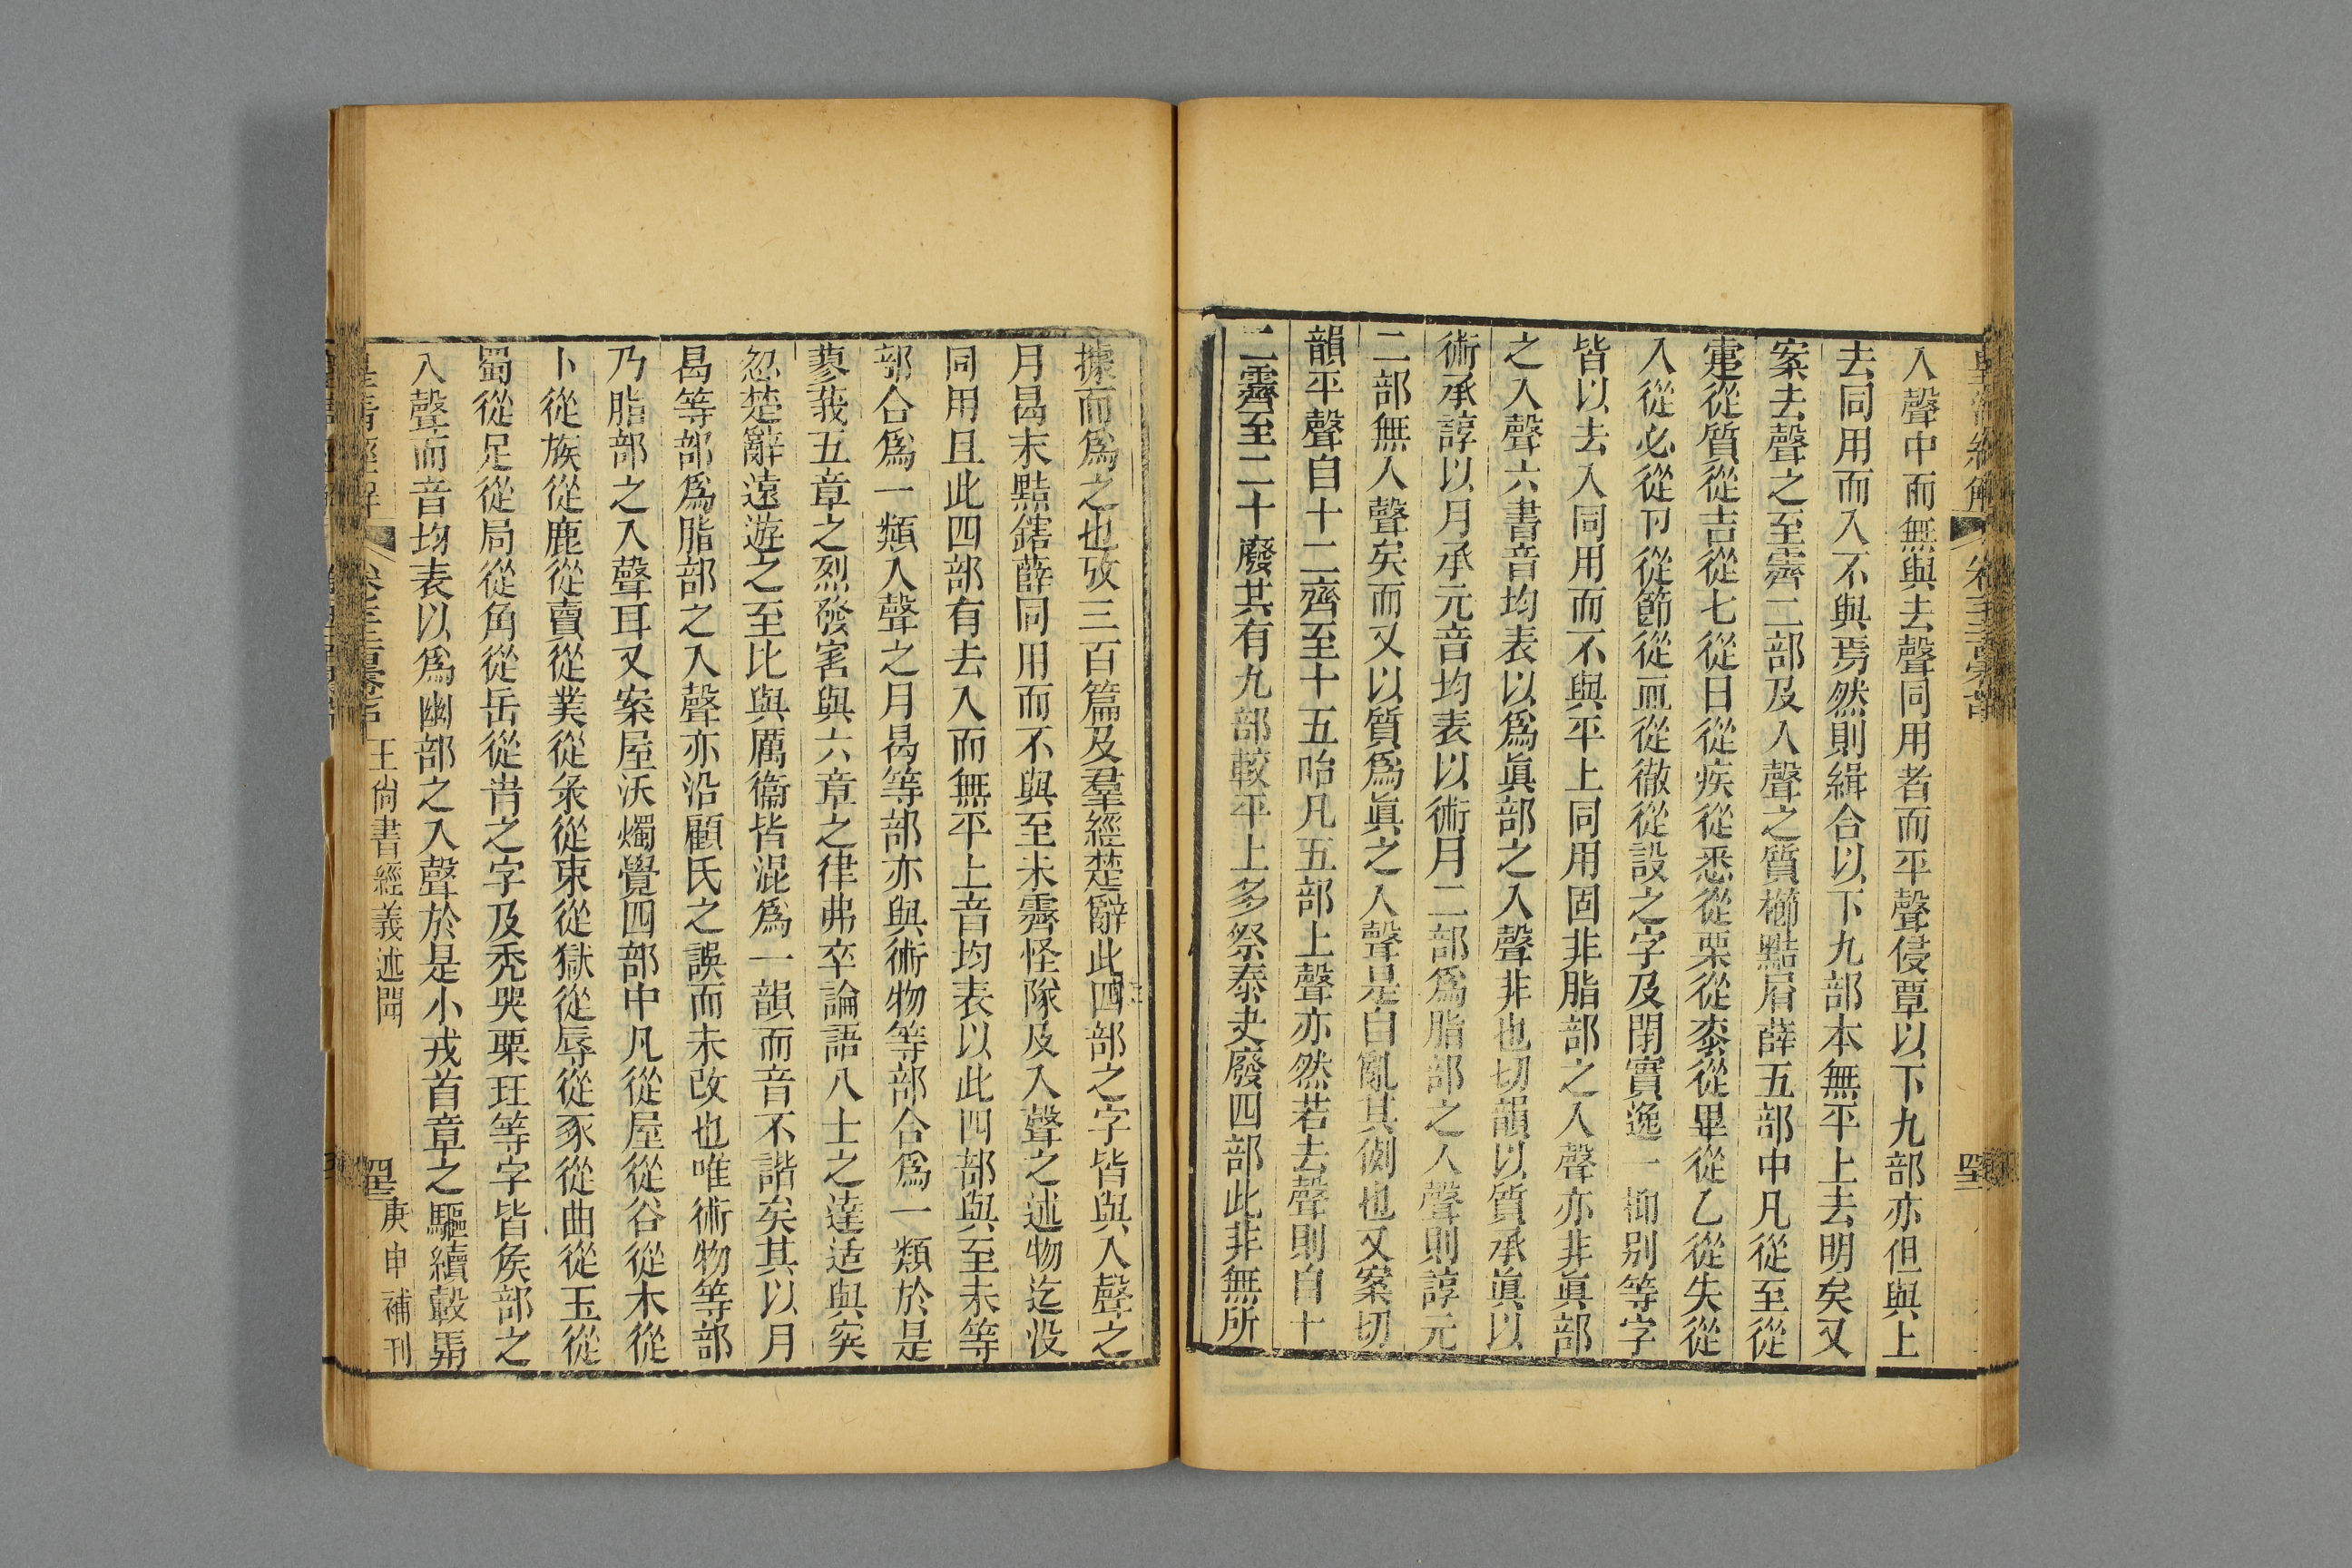 皇清經解
入聲中而無與去聲同用者而平聲侵覃以下九部亦但與上
去同用而入不與焉然則緝合以下九部本無平上去明矣又
案去聲之至霽二部及入聲之質櫛黠屑薛五部中凡從至從
疐從質從吉從七從日從疾從悉從栗從桼從畢從乙從失從
八從必從卪從節從血從徹從設之字及閉實逸一抑别等字
皆以去入同用而不與平上同用固非脂部之入聲亦非眞部
之入聲六書音均表以爲眞部之入聲非也切韻以質承眞以
術承諄以月承元音均表以術月二部爲脂部之入聲則諄元
二部無入聲矣而又以質爲眞之入聲是自亂其例也又案切
韻平聲自十二齊至十五咍凡五部上聲亦然若去聲則自十
二霽至二十廢其有九部較平上多祭泰夬廢四部此非無所
據而爲之也攷三百篇及羣經楚辭此四部之字皆與入聲之
月曷末黠鎋薛同用而不與至未霽怪隊及入聲之述物迄没
同用且此四部有去入而無平上音均表以此四部與至未等
部合爲一類入聲之月曷等部亦與術物等部合爲一類於是
蓼莪五章之烈發害與六章之律弗卒論語八士之達适與突
忽楚辭遠遊之至比與厲衞皆混爲一韻而音不諧矣其以月
曷等部爲脂部之入聲亦沿顧氏之誤而未改也唯術物等部
乃脂部之入聲耳又案屋沃燭覺四部中凡從屋從谷從木從
卜從族從鹿從賣從菐從彔從束從獄從辱從豕從曲從玉從
蜀從足從局從角從岳從青之字及禿哭粟玨等字皆矦部之
入聲而音均表以爲幽部之入聲於是小戎首章之驅續轂馵
皇清經解 王尙書經義述聞 庚申補刊